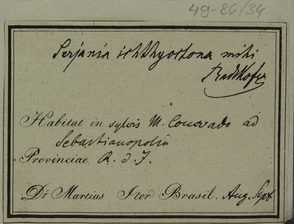 49-86/34
Serjania ichthyoctona mihi
Radlkofer
Habitat in sylvis M. Corcovado ad
Sebastianopolin
Provinciae R. d J.
Dr Martius Iter Brasil. Aug. Sept.